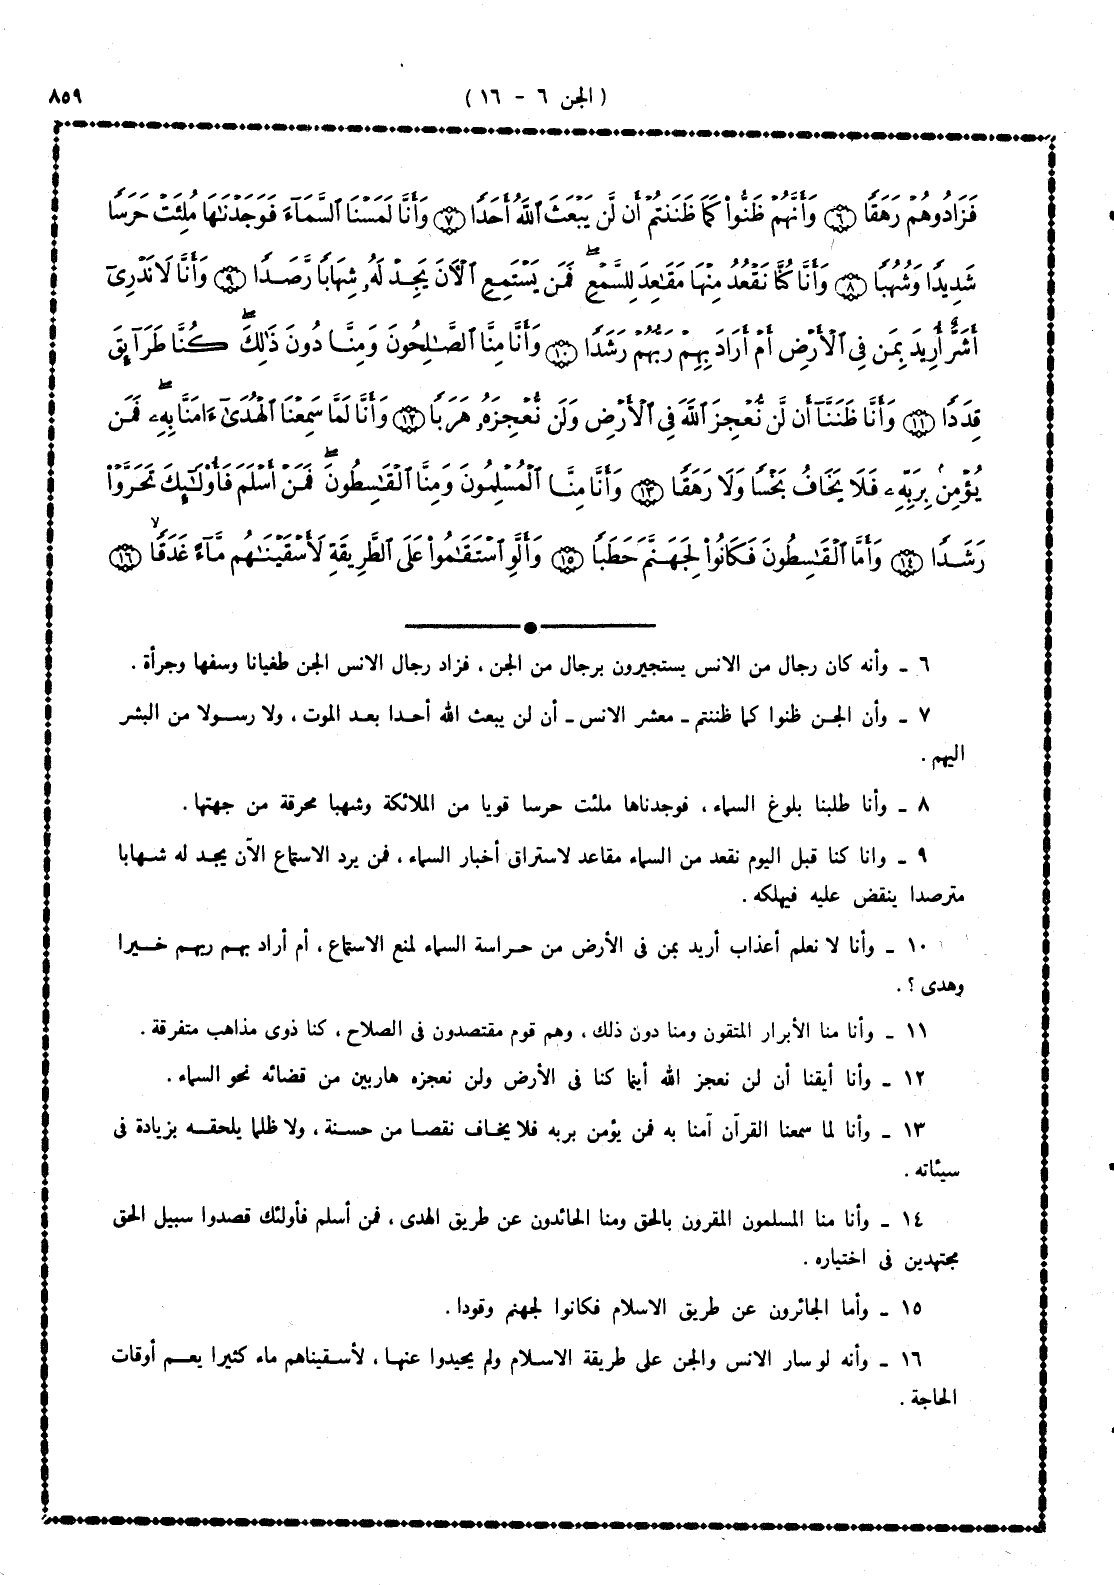 (الجن ٦ - ١٦) ٨٥٩
فَزَادُوهُمْ رَهَقًا ٦ وَأَنَّهُمْ ظَنُّوا۟ كَمَا ظَنَنتُمْ أَن لَّن يَبْعَثَ ٱللَّهُ أَحَدًا ٧ وَأَنَّا لَمَسْنَا ٱلسَّمَآءَ فَوَجَدْنَـٰهَا مُلِئَتْ حَرَسًا
شَدِيدًا وَشُهُبًا ٨ وَأَنَّا كُنَّا نَقْعُدُ مِنْهَا مَقَـٰعِدَ لِلسَّمْعِ ۖ فَمَن يَسْتَمِعِ ٱلْـَٔانَ يَجِدْ لَهُۥ شِهَابًا رَّصَدًا ٩ وَأَنَّا لَا نَدْرِىٓ
أَشَرٌّ أُرِيدَ بِمَن فِى ٱلْأَرْضِ أَمْ أَرَادَ بِهِمْ رَبُّهُمْ رَشَدًا ١٠ وَأَنَّا مِنَّا ٱلصَّـٰلِحُونَ وَمِنَّا دُونَ ذَٰلِكَ ۖ كُنَّا طَرَآئِقَ
قِدَدًا ١١ وَأَنَّا ظَنَنَّآ أَن لَّن نُّعْجِزَ ٱللَّهَ فِى ٱلْأَرْضِ وَلَن نُّعْجِزَهُۥ هَرَبًا ١٢ وَأَنَّا لَمَّا سَمِعْنَا ٱلْهُدَىٰٓ ءَامَنَّا بِهِۦ ۖ فَمَن
يُؤْمِنۢ بِرَبِّهِۦ فَلَا يَخَافُ بَخْسًا وَلَا رَهَقًا ١٣ وَأَنَّا مِنَّا ٱلْمُسْلِمُونَ وَمِنَّا ٱلْقَـٰسِطُونَ ۖ فَمَنْ أَسْلَمَ فَأُو۟لَـٰٓئِكَ تَحَرَّوْا۟
رَشَدًا ١٤ وَأَمَّا ٱلْقَـٰسِطُونَ فَكَانُوا۟ لِجَهَنَّمَ حَطَبًا ١٥ وَأَلَّوِ ٱسْتَقَـٰمُوا۟ عَلَى ٱلطَّرِيقَةِ لَأَسْقَيْنَـٰهُم مَّآءً غَدَقًا ۙ ١٦
٦ ـ وأنه كان رجال من الانس يستجيرون برجال من الجن ، فزاد رجال الانس الجن طغيانا وسفها وجرأة .
٧ ـ وأن الجن ظنوا كما ظننتم ـ معشر الانس ـ أن لن يبعث الله أحدا بعد الموت ، ولا رسولا من البشر
اليهم .
٨ ـ وأنا طلبنا بلوغ السماء ، فوجدناها ملئت حرسا قويا من الملائكة وشهبا محرقة من جهتها .
٩ ـ وانا كنا قبل اليوم نقعد من السماء مقاعد لاستراق أخبار السماء ، فمن يرد الاستماع الآن يجد له شهابا
مترصدا ينقض عليه فيهلكه .
١٠ ـ وأنا لا نعلم أعذاب أريد بمن فى الأرض من حراسة السماء لمنع الاستماع ، أم أراد بهم ربهم خيرا
وهدى ؟ .
١١ ـ وأنا منا الأبرار المتقون ومنا دون ذلك ، وهم قوم مقتصدون فى الصلاح ، كنا ذوى مذاهب متفرقة .
١٢ ـ وأنا أيقنا أن لن نعجز الله أينما كنا فى الأرض ولن نعجزه هاربين من قضائه نحو السماء .
١٣ ـ وأنا لما سمعنا القرآن آمنا به فمن يؤمن بربه فلا يخاف نقصا من حسنة ، ولا ظلما يلحقه بزيادة فى
سيئاته .
١٤ ـ وأنا منا المسلمون المقرون بالحق ومنا الحائدون عن طريق الهدى ، فمن أسلم فأولئك قصدوا سبيل الحق
مجتهدين فى اختياره .
١٥ ـ وأما الجائرون عن طريق الاسلام فكانوا لجهنم وقودا .
١٦ ـ وأنه لو سار الانس والجن على طريقة الاسلام ولم يحيدوا عنها ، لأسقيناهم ماء كثيرا يعم أوقات
الحاجة .